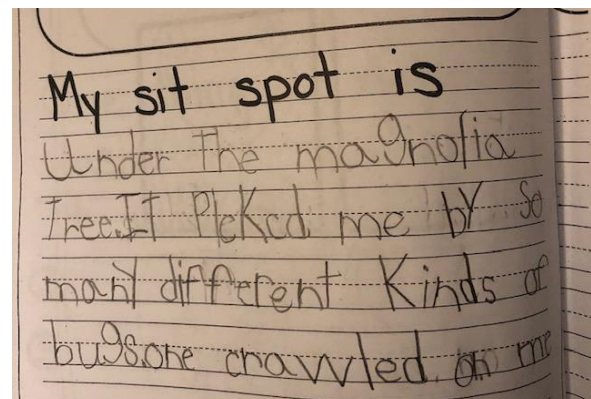 My sit spot is
Under The magnolia
Tree.IT PIcKcd me bY So
manY different Kinds of
bugs.one crawled on me